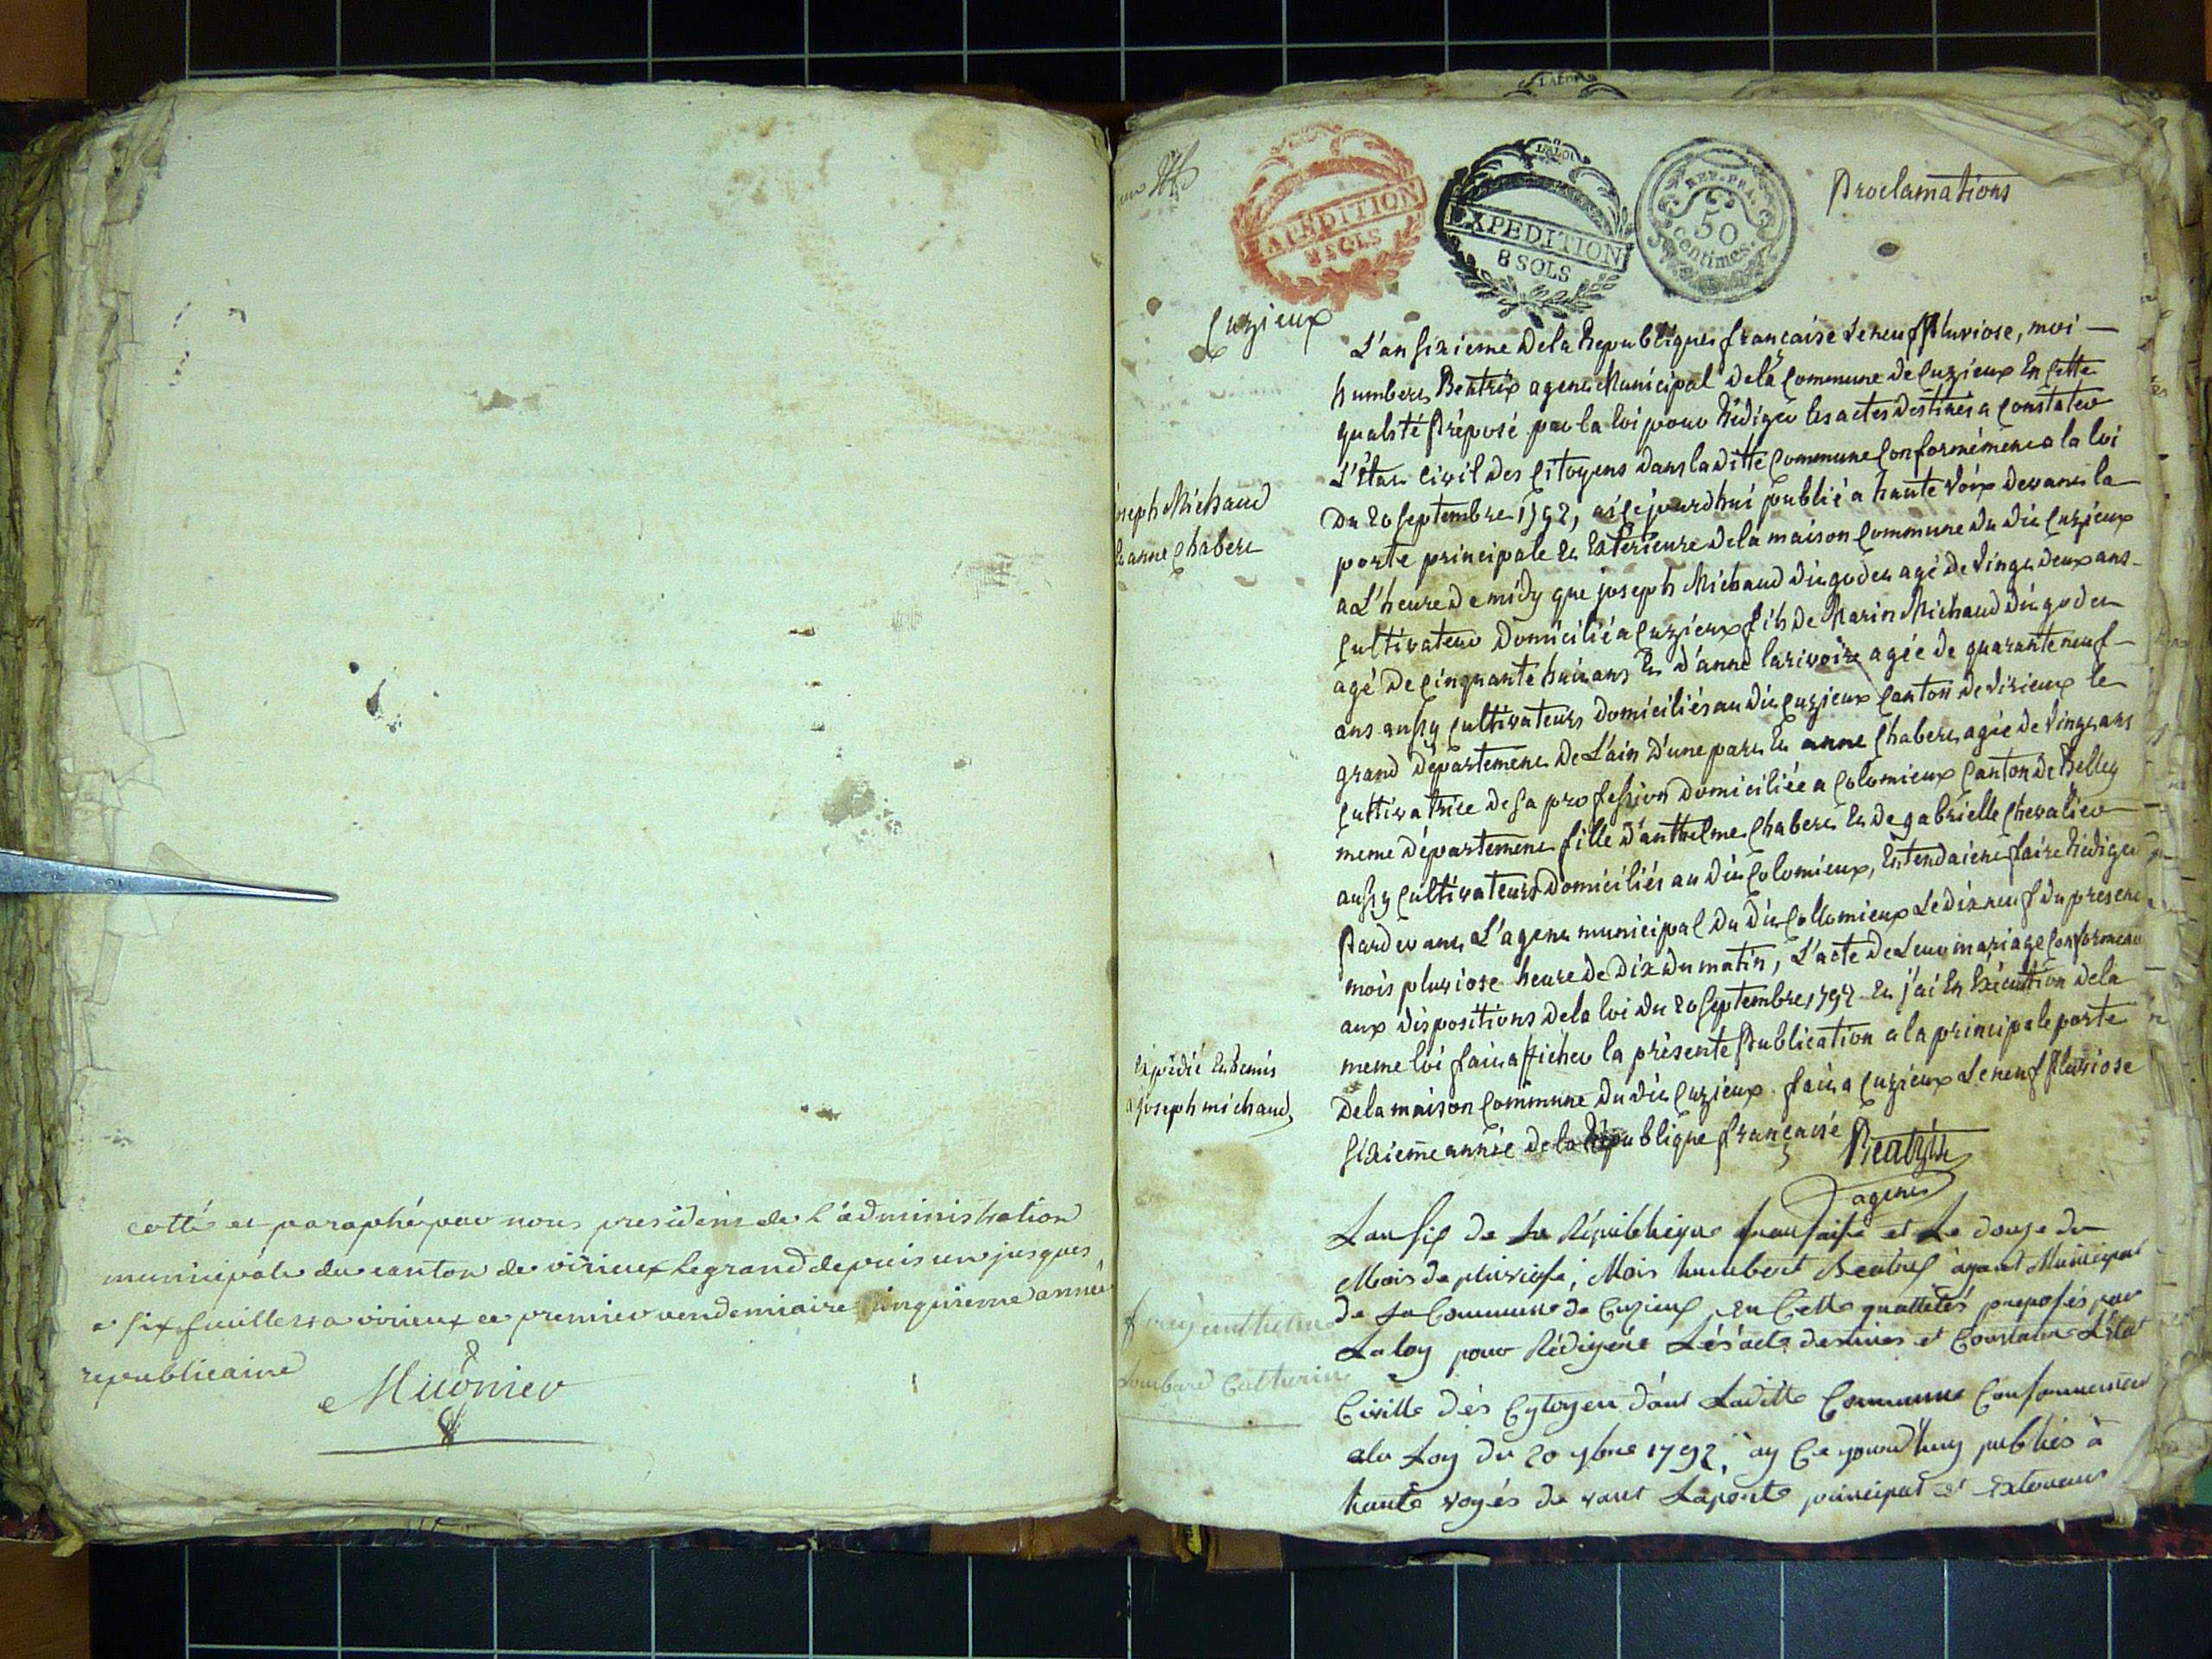 cotté et paraphé par nous president de l'administration
municipale du canton de virieux le grand depuis un jusques
a six feuillets a virieux ce premier vendemiaire cinquieme année
republicaine
Mugnier
EXPEDITION
8 SOLS
LA LOI
EXPEDITION
8 SOLS
REP. FRA.
50
centimes.
Proclamations
Cuzieux
L'an sixieme de la Republique française le neuf Pluviose, moi
humbert Beatrix agent Municipal de la Commune de Cuzieux En Cette
qualité Préposé par la loi pour Rédiger les actes destinés a Constater
L'Etat Civil des Citoyens dans la ditte Commune Conformément a la loi
Du 20 septembre 1792, ai Cejourdhui publié a haute Voix devant la
porte principale Et Exterieure de la maison Commune du dit Cuzieux
a L'heure de midy que joseph Michaud dit goden agé de Vingt deux ans
Cultivateur Domicilié a Cuzieux fils de Marin Michaud dit goden
agé de Cinquante huit ans Et d'anne larivoire agée de quarante neuf
ans aussy Cultivateurs domiciliés au dit Cuzieux Canton de Virieux le
grand département de L'ain d'une part Et anne Chabert agée de Vingt ans
Cultivatrice de sa profession domiciliée a Colomieux Canton de Belley
meme département fille d'anthelme Chabert Et de gabrielle Chevalier
aussy Cultivateurs Domiciliés au dit Colomieux, Entendaient faire Rédiger
Pardevant L'agent municipal du dit Collomieux Le dix neuf du present
mois pluviose heure de dix du matin, L'acte de Leur mariage Conformement
aux dispositions de la loi du 20 septembre 1792 Et j'ai En Exécution de la
meme loi fait afficher la présente Publication a la principale porte
De la maison Commune du dit Cuzieux fait a Cuzieux Le neuf Pluviose
sixieme année de la République française
Beatrix
agent
joseph Michaud
Et anne Chabert
Expédié Et Remis
a joseph michaud
L'an six de la Républiique fransaise et Le douze du
Mois de pluviose, Mois humbert Beatrix agant Municipal
de La Commune de Cuzieux En Cette quallités preposés par
La loy pour Rédigére Lés acte destinés et Constater L'état
Civille dés Cytoyen dant Laditte Commune Conformement
ala Loy du 20 7bre 1792, ay Ce yourd'huy publiés à
haute voyés de vant Laporte principal et Exterieur
anthelme
Lombard Catherine